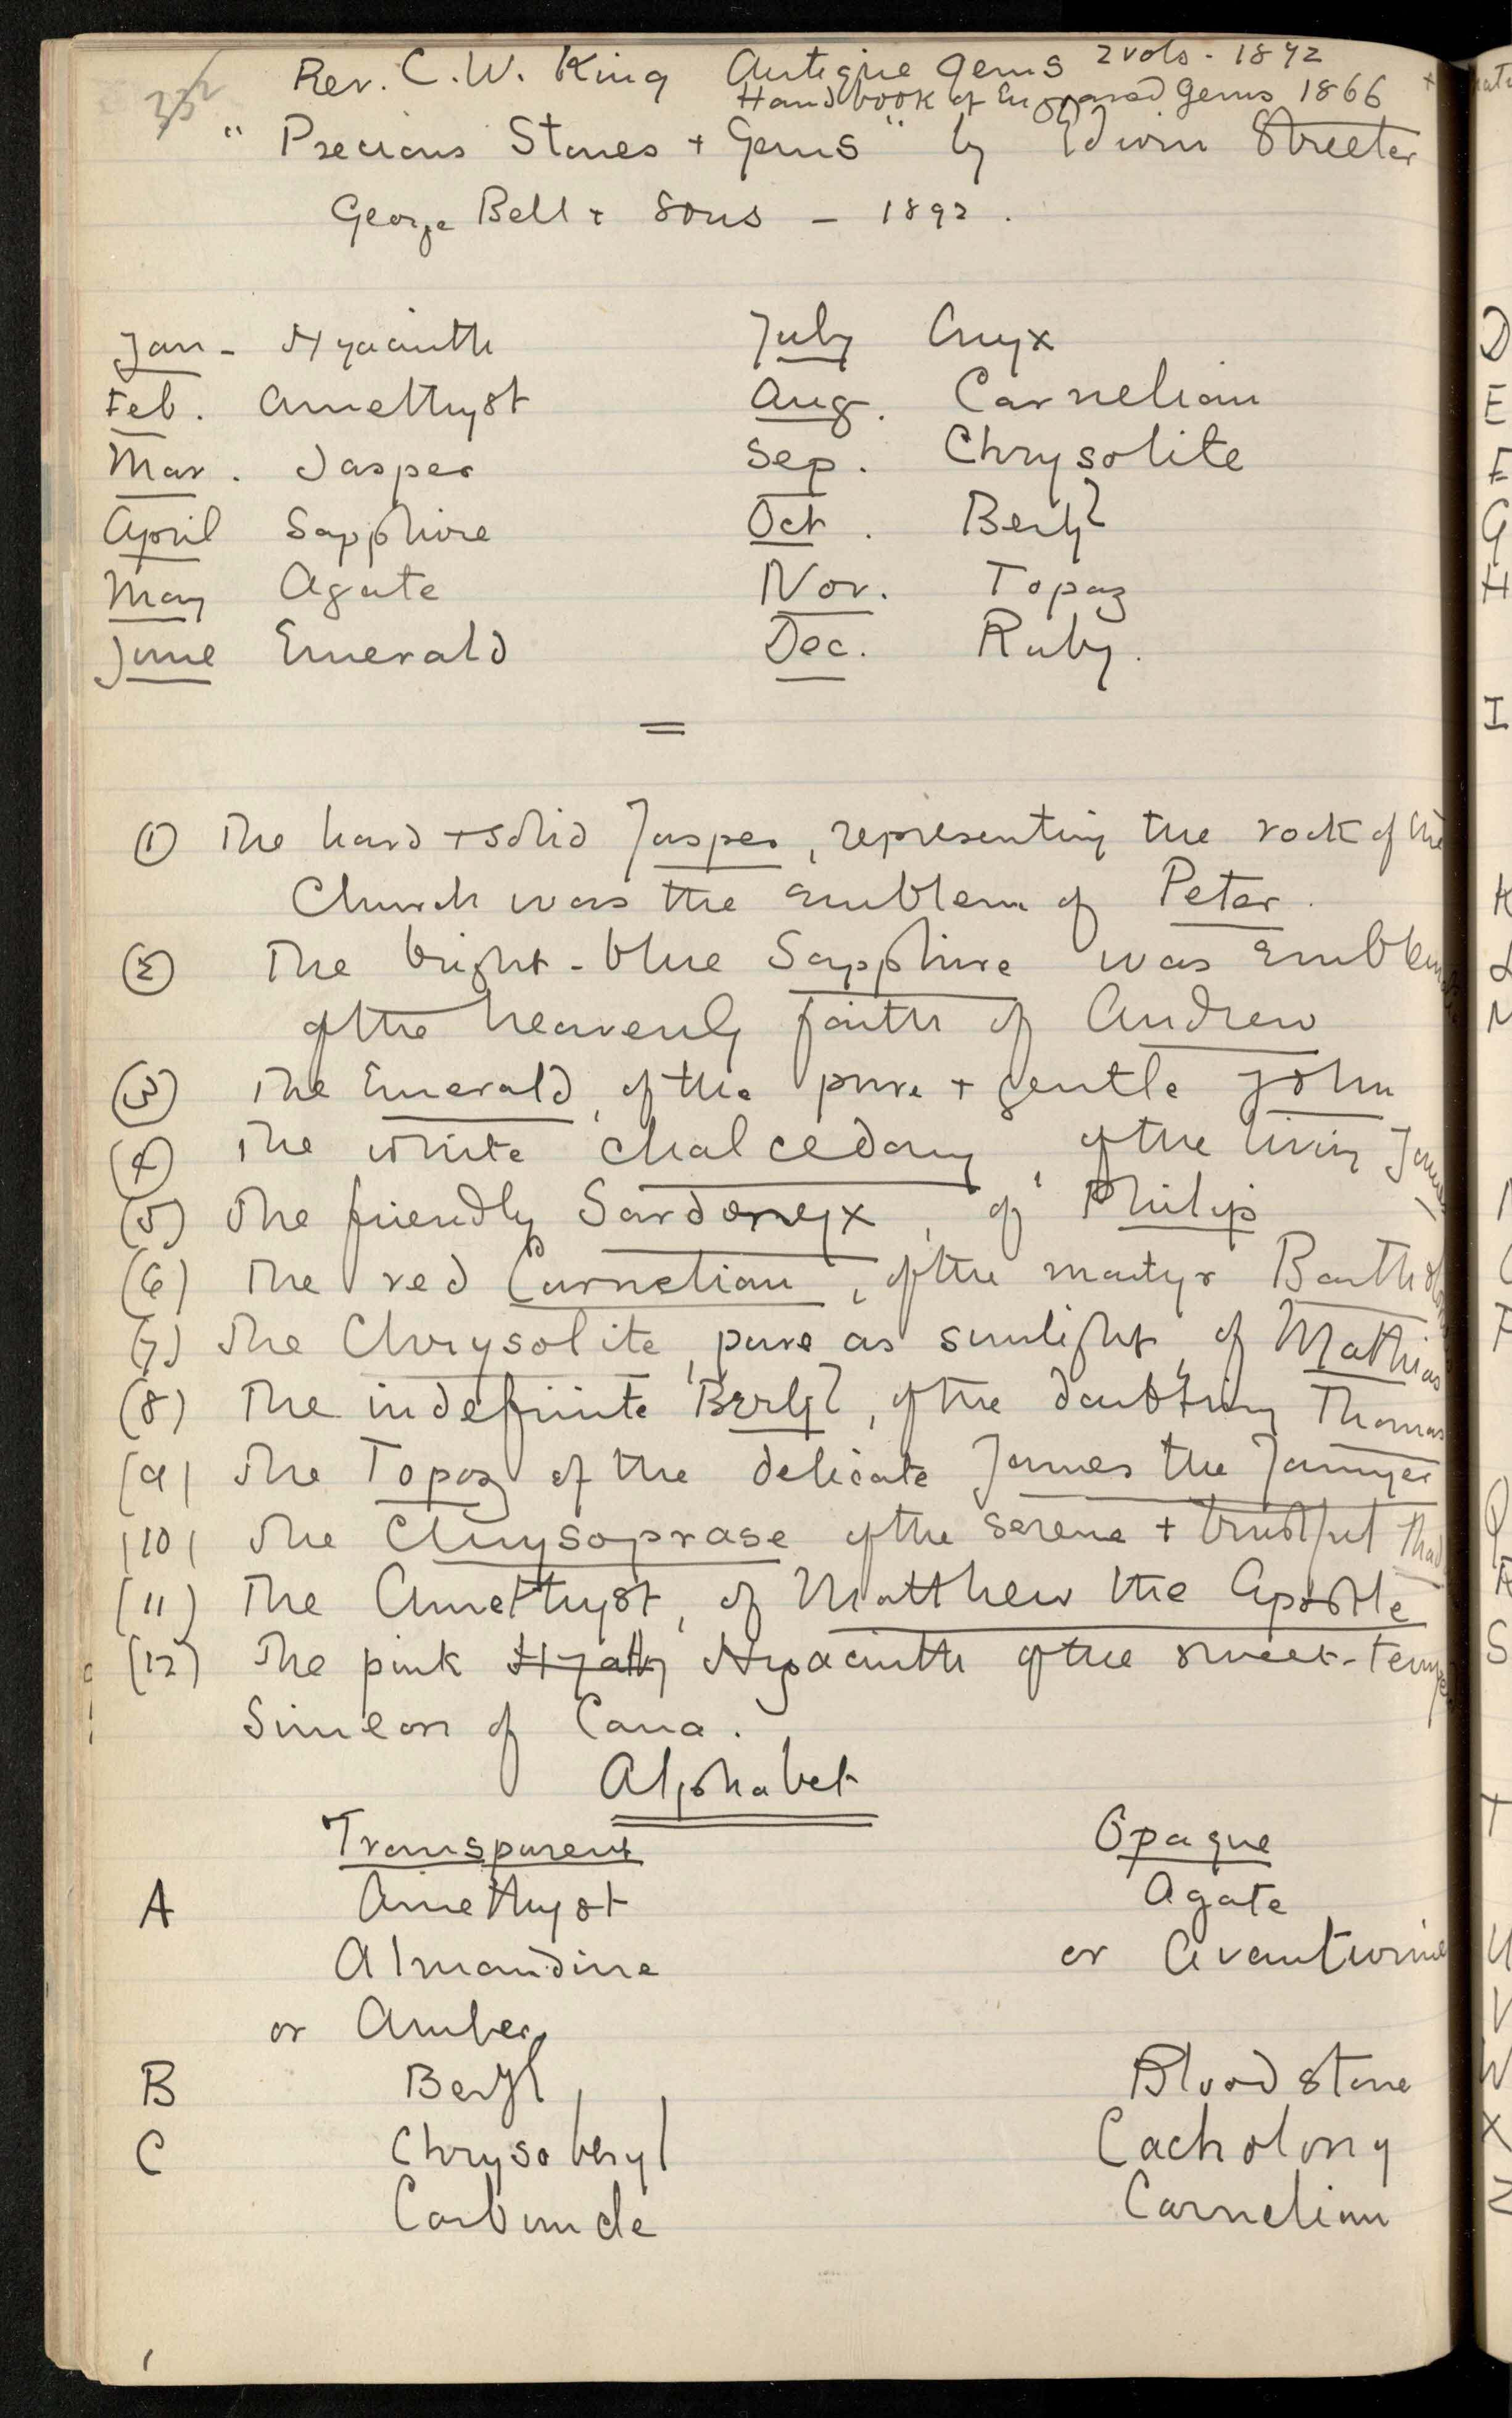 Rev. C.W. King Antique Gems 2 vols - 1872
Handbook of Engraved Gems 1866 +
" Precious Stones + Gems " by Edwin Streeter
George Bell + Sons - 1892.
Jan - Hyacinth July Onyx
Feb. Amethyst Aug. Carnelian
Mar. Jasper Sep. Chrysolite
April Sapphire Oct. Beryl
May Agate Nov. Topaz
June Emerald Dec. Ruby.
=
(1) The hard + solid Jasper, representing the rock of the
Church was the emblem of Peter.
(2) The bright-blue Sapphire was
of the heavenly faith of Andrew
(3) The Emerald, of the pure + gentle John
(4) The white Chalcedony, of the living James
(5) The friendly Sardonyx, of Philip
(6) The red Carnelian, of the martyr
(7) The Chrysolite, pure as sunlight, of Mathias
(8) The indefinite Beryl, of the doubting Thomas
(9) The Topaz of the delicate James the Younger
(10) The Chrysoprase of the serene + trustful
(11) The Amethyst, of Matthew the Apostle
(12) The pink Hyacinth of the sweet-
Simeon of Cana.
Alphabet
Transparent Opaque
A Amethyst Agate
Almandine or Avanturine
or Amber
B Beryl Bloodstone
C Chrysoberyl Cacholong
Carbuncle Carnelian
D
E
F
G
H
I
K
L
M
N
O
P
Q
R
S
T
U
V
W
X
Z